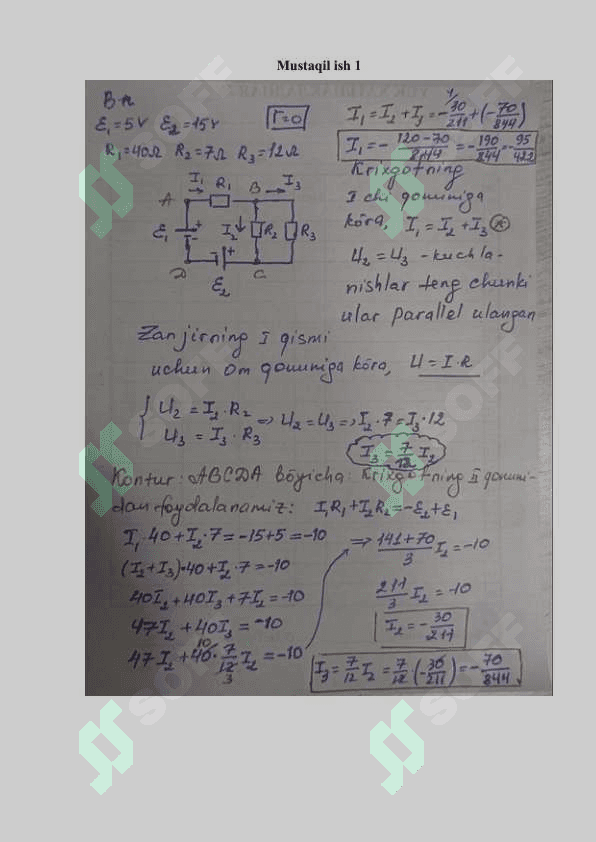 Mustaqil ish 1
B.n
ε₁=5V ε₂=15V r=0
R₁=40Ω R₂=7Ω R₃=12Ω
I₁ R₁ B I₃
A
ε₁ + - I₂ R₂ R₃
D - + C
ε₂
I₁ = I₂ + I₃ = -30/211 + (-70/844)
I₁ = - 120-70/844 = -190/844 = -95/422
Krixgofning
I chi qonuniga
ko'ra, I₁ = I₂ + I₃ *
U₂ = U₃ - kuchla-
nishlar teng chunki
ular parallel ulangan
Zanjirning I qismi
uchun om qonuniga ko'ra, U = I·R
{ U₂ = I₂·R₂
U₃ = I₃·R₃ => U₂ = U₃ => I₂·7 = I₃·12
I₃ = 7/12 I₂
Kontur: ABCDA bo'yicha: Krixgofning II qonuni-
dan foydalanamiz: I₁R₁+I₂R₂=-ε₂+ε₁
I₁·40+I₂·7=-15+5=-10
(I₂+I₃)·40+I₂·7=-10
40I₂+40I₃+7I₂=-10
47I₂+40I₃=-10
47I₂+40·7/12 I₂=-10
10
3
=> 141+70/3 I₂=-10
211/3 I₂=-10
I₂=-30/211
I₃=7/12 I₂=7/12·(-30/211)=-70/844
SOFF
SOFF
SOFF
SOFF
SOFF